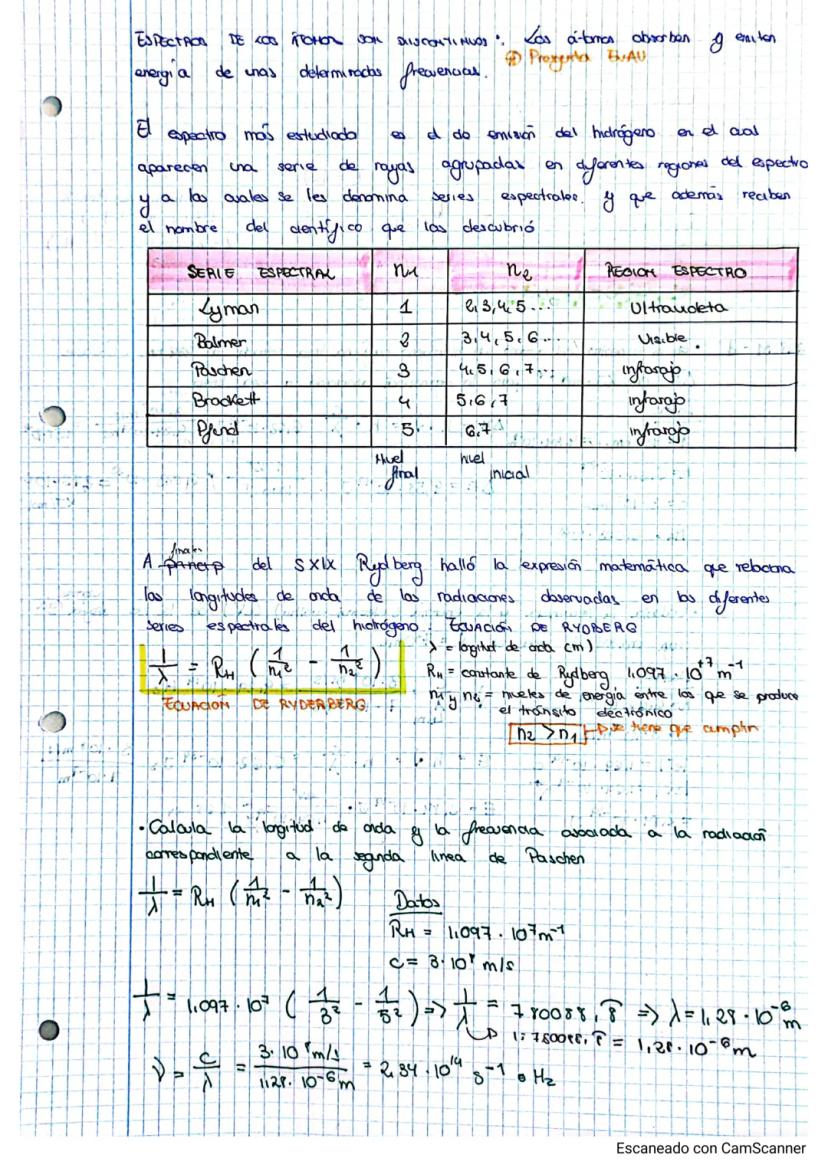 ESPECTROS DE LOS ÁTOMOS SON DISCONTINUOS: Los átomos absorben y emiten
energía de unas determinadas frecuencias. Pregunta EvAU
El espectro más estudiado es el de emisión del hidrógeno en el cual
aparecen una serie de rayas agrupadas en diferentes regiones del espectro
y a las cuales se les denomina series espectrales, y que además reciben
el nombre del científico que las descubrió
SERIE ESPECTRAL n1 n2 REGION ESPECTRO
Lyman 1 2,3,4,5... Ultravioleta
Balmer 2 3,4,5,6... Visible
Paschen 3 4,5,6,7... infrarojo
Brackett 4 5,6,7 infrarojo
Pfund 5 6,7 infrarojo
Nivel final nivel inicial
A finales del SXIX Rydberg halló la expresión matemática que relaciona
las longitudes de onda de las radiaciones observadas en las diferentes
series espectrales del hidrógeno. ECUACIÓN DE RYDBERG
1/λ = RH (1/n1² - 1/n2²)
ECUACIÓN DE RYDERBERG
λ = logitud de onda (m)
RH = constante de Rydberg 1,097 · 10⁺⁷ m⁻¹
n1 y n2 = niveles de energía entre los que se produce
el tránsito electrónico
n2 > n1 → Se tiene que cumplir
· Calcula la longitud de onda y la frecuencia asociada a la radiación
correspondiente a la segunda linea de Paschen
1/λ = RH (1/n1² - 1/n2²)
Datos
RH = 1,097 · 10⁷ m⁻¹
c = 3·10⁸ m/s
1/λ = 1,097 · 10⁷ (1/3² - 1/5²) => 1/λ = 780088,8̂ => λ = 1,28 · 10⁻⁶ m
↳ 1: 780088,8̂ = 1,28 · 10⁻⁶ m
ν = c/λ = 3·10⁸ m/s / 1,28 · 10⁻⁶ m = 2,34 · 10¹⁴ s⁻¹ o Hz
Escaneado con CamScanner